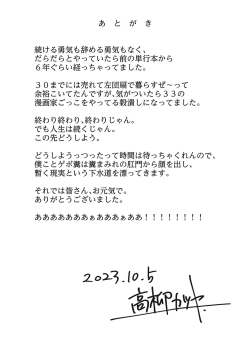 あとがき
続ける勇気も辞める勇気もなく、
だらだらとやっていたら前の単行本から
６年ぐらい経っちゃってました。
３０までには売れて左団扇で暮らすぜ～って
余裕こいてたんですが、気がついたら３３の
漫画家ごっこをやってる穀潰しになってました。
終わり終わり、終わりじゃん。
でも人生は続くじゃん。
この先どうしよう。
どうしようっつったって時間は待っちゃくれんので、
僕ことゲボ糞は糞まみれの肛門から顔を出し、
暫く現実という下水道を漂ってきます。
それでは皆さん、お元気で。
ありがとうございました。
ああああああぁぁああぁああ！！！！！！！！
2023.10.5
高柳カツヤ